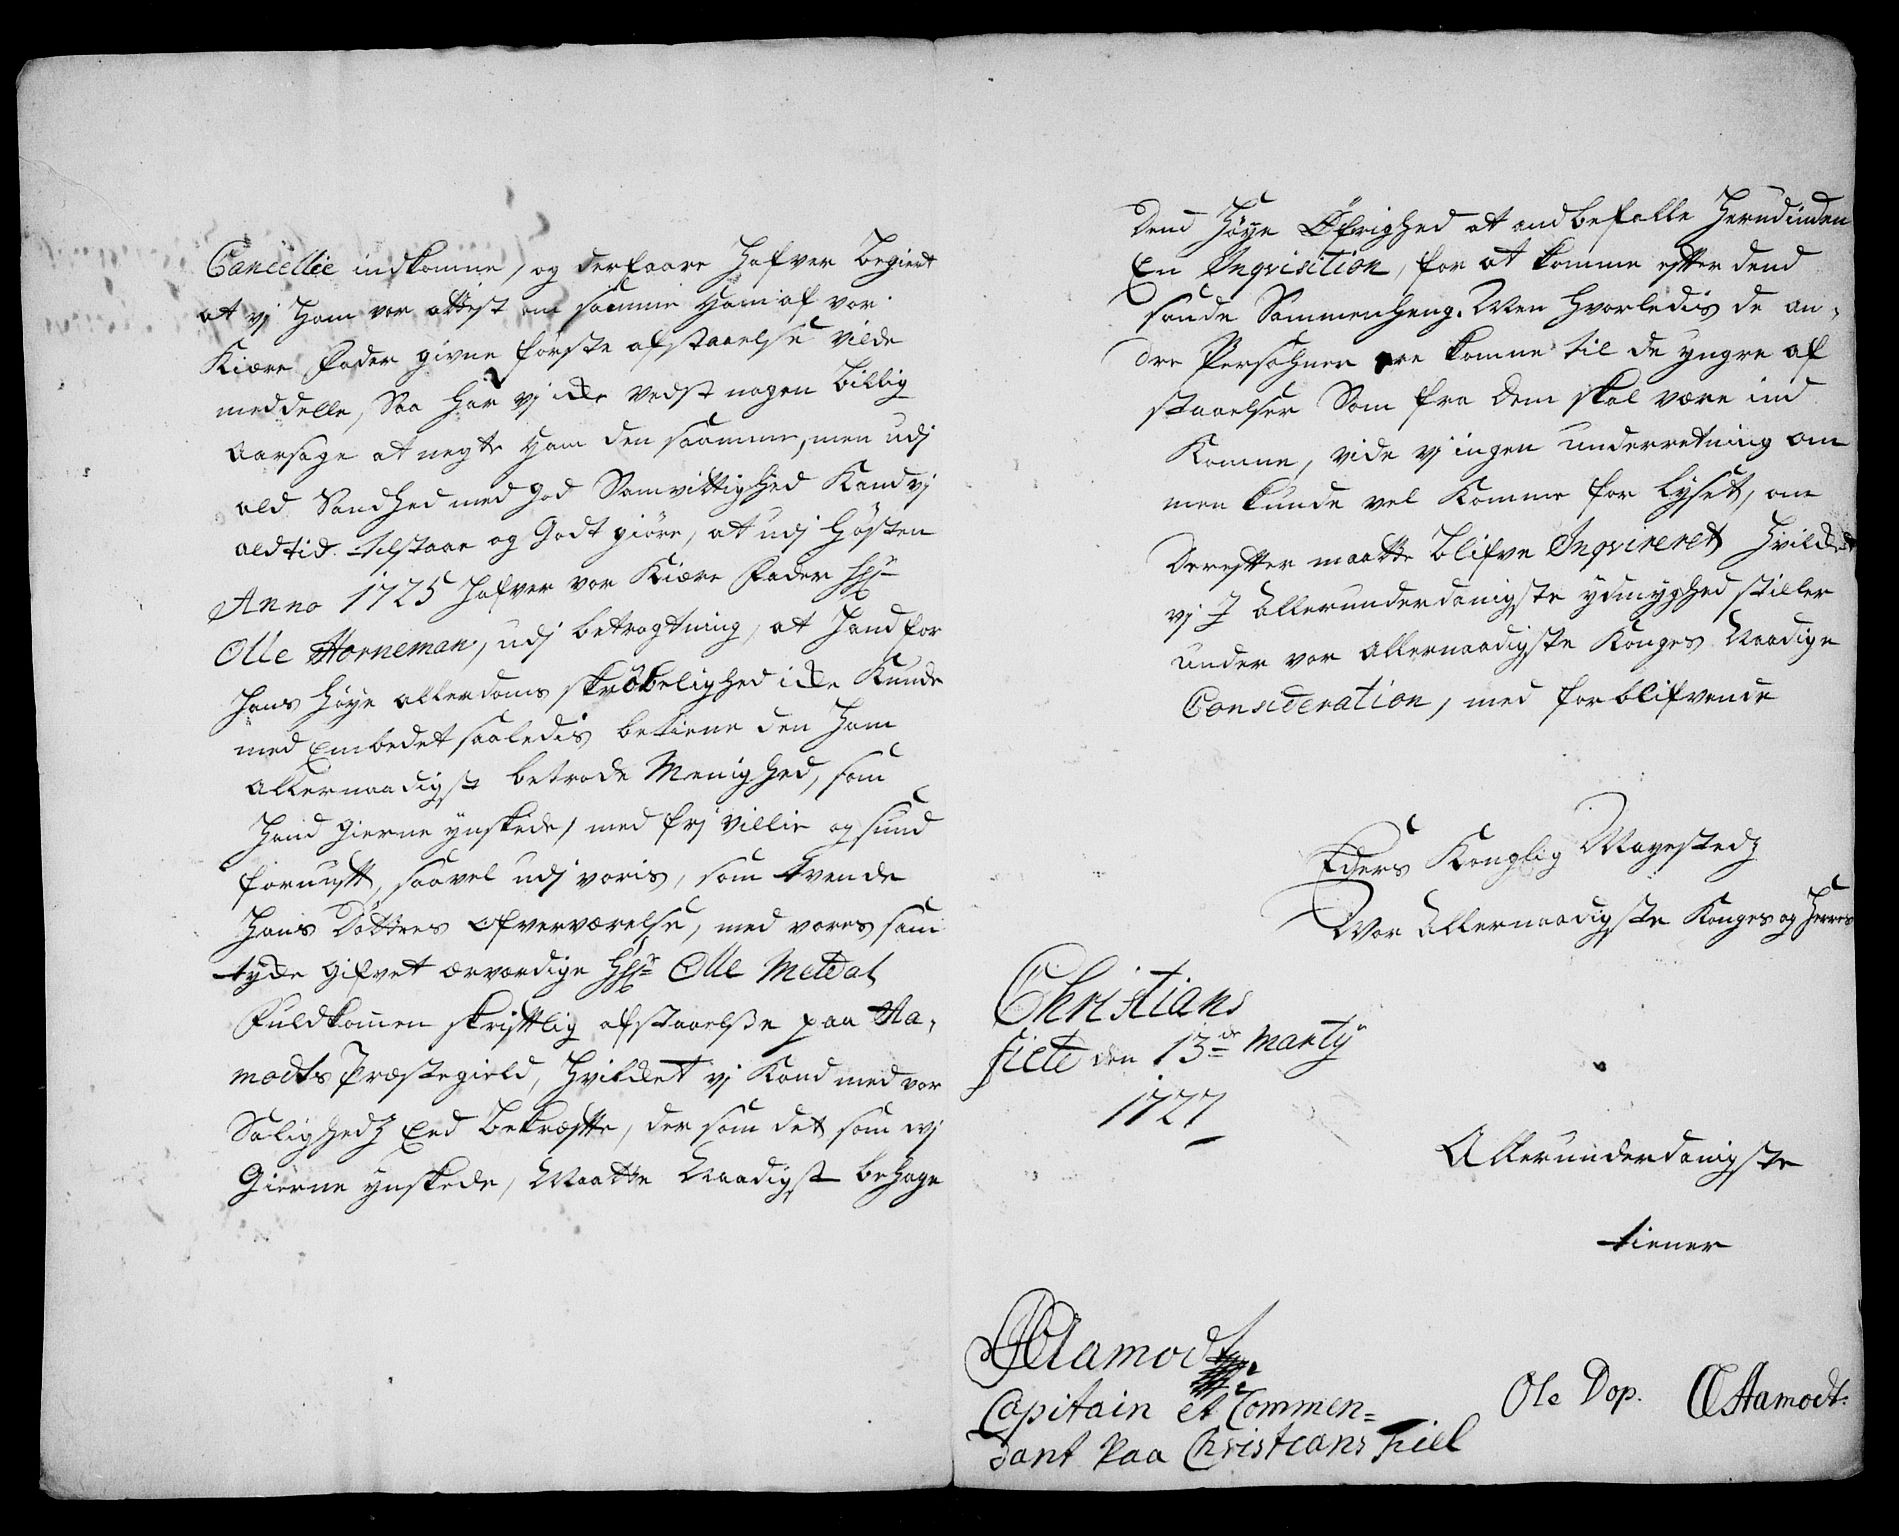 Cancellie indkomme, og derfaare hafver begiert
at vj ham vor attest om samme ham af vor
Kiære Fader givne første afstaaelse vilde
meddelle, Saa har vj icke vedst nogen billig
aarsage at negte ham den samme, men udj
ald Sandhed med god Samvittighed Kand vj
altid tilstaae og Godt giøre, at udj Høsten
Anno 1725 hafver vor Kiære Fader Hr
Olle Horneman, udj betragtning, at hand for
hans høye allerdoms skrøbelighed icke Kunde
med Embedet saaledis betiene den ham
allernaadigst betrode Menighed, som
hand gierne ynskede, med frj villie og sund
fornufft, saavel udj voris, som tvende
hans Døttres Ofverværelse, med vores sam
tycke gifvet ærværdige Hr Olle Meldal
Fuldkommen skrifftlig afstaaelse paa Sta,
modts Præstegield, hvilcket vj Kand med vor
Saligheds Eed bekræffte, der som det som wj
Gierne ynskede, Maatte Naadigst behage
Dend høye Øfrighed at andbefalle herudinden
En Inqvisition, for at komme effter dend
sande Sammenheng. Men hvorledis de an,
dre Persohner ere komne til de yngre af
staaelser Som fra dem skal være ind
Komne, vide vj ingen underretning om
men kunde vel Komme for Lyset, om
derefter maatte blifve Inqvireret hvilcket
vj J allerunderdanigste ydmyghed stiller
under vor allernaadigste Konges Naadige
Consideration, med forblifvende
Eders Konglig Mayesteds
Vor allernaadigste Konges og Herres
Christians
fieled den 13de Marty
1727
Allerunderdanigste
tiener
Stamodt
Capitain et Commen=
dant paa Christians Fiell
Ole Dop. Stamodt.